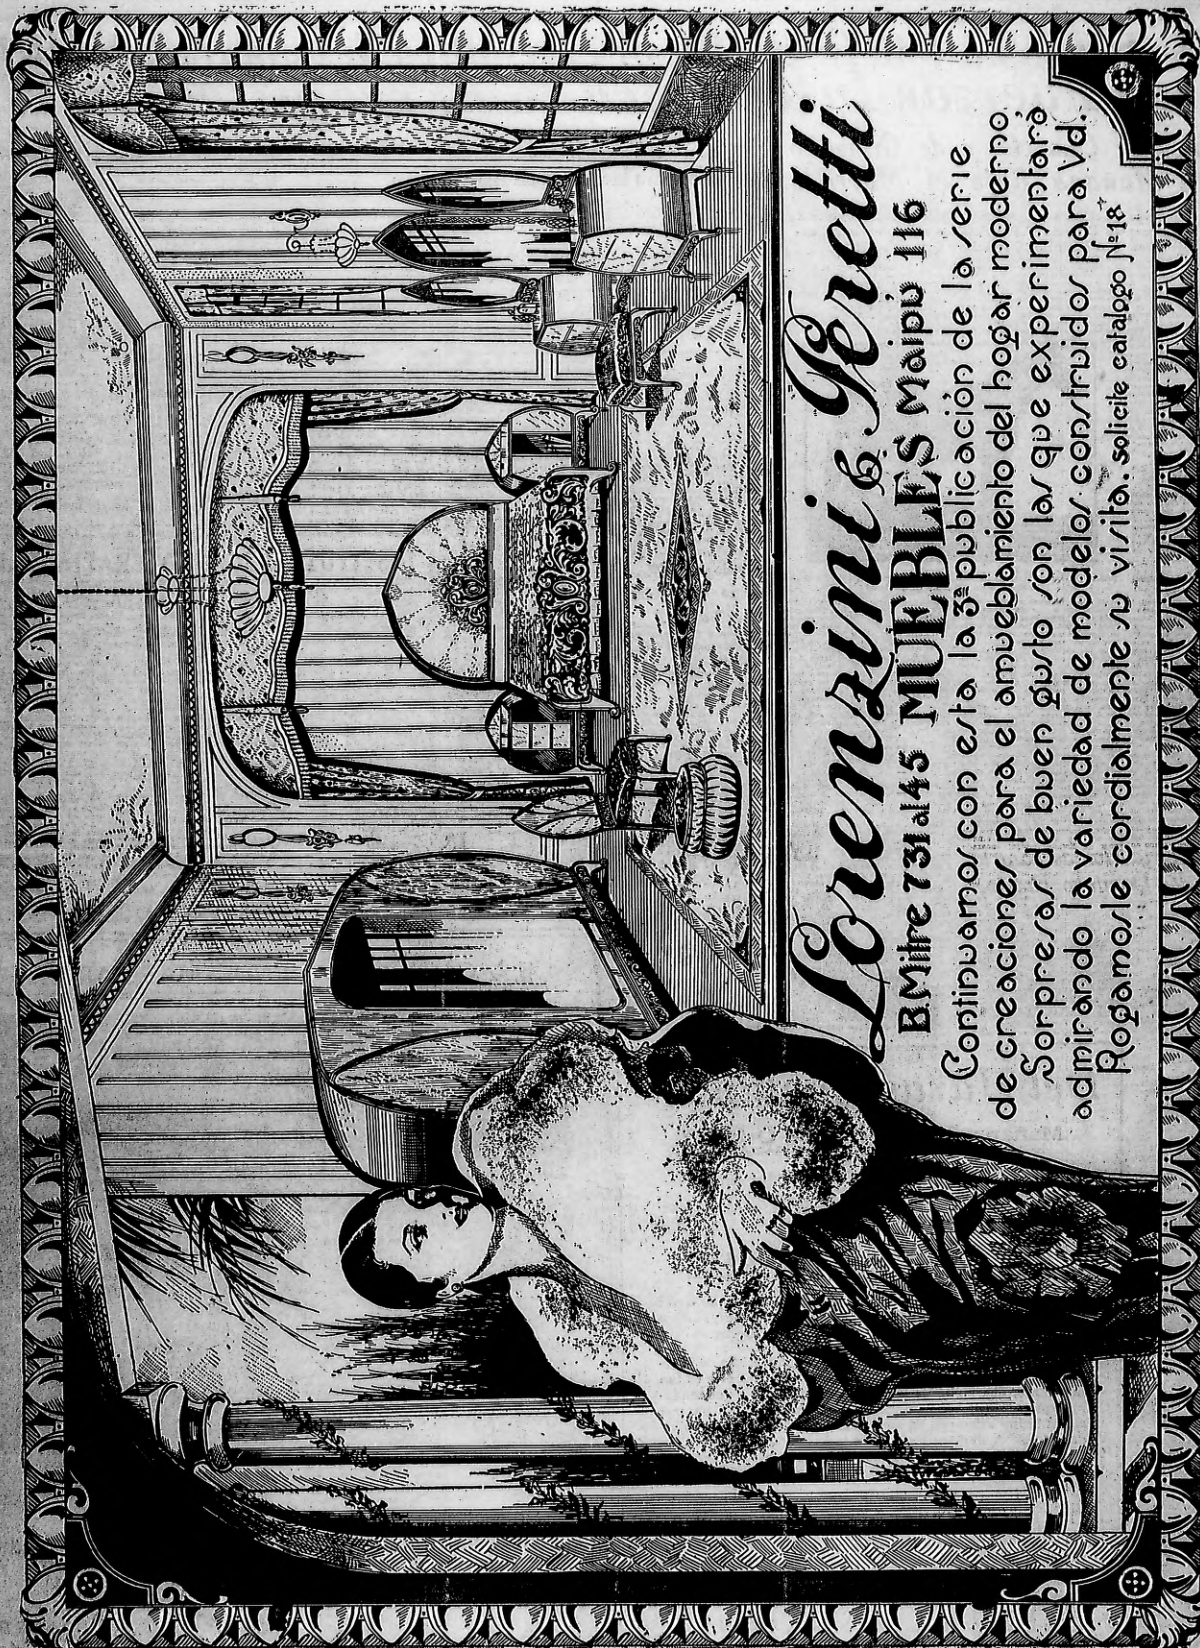 Lorenzini & Peretti
B. Mitre 731 al 45 MUEBLES Maipú 116
Continuamos con esta la 3ª publicación de la serie
de creaciones para el amueblamiento del hogar moderno
Sorpresas de buen gusto son las que experimentará
admirando la variedad de modelos construidos para Vd.
Rogamosle cordialmente su visita. solicite catalogo Nº 18